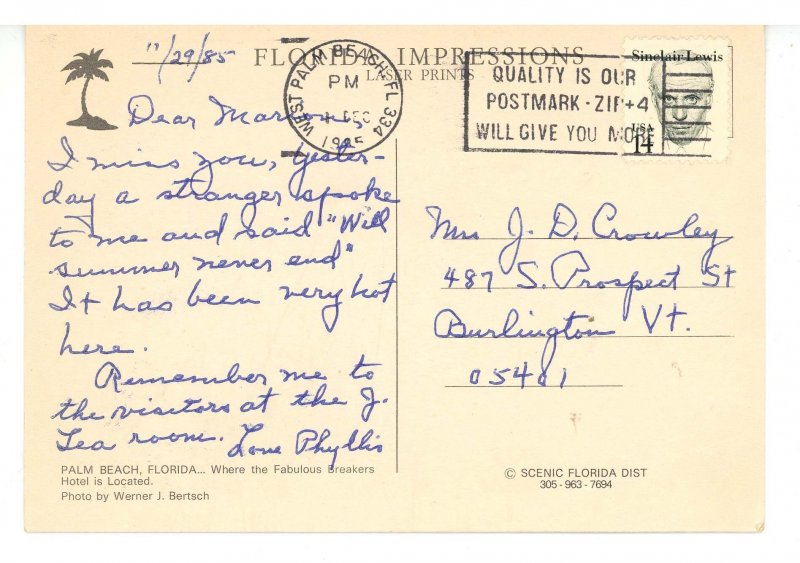 11/29/85
FLORIDA IMPRESSIONS
LASER PRINTS
WEST PALM BEACH, FL 334
PM
DEC
1985
QUALITY IS OUR
POSTMARK - ZIP+4
WILL GIVE YOU MO
Sinclair Lewis
USA
14
Dear
I miss you, Yester-
day a stranger spoke
to me and said "Will
summer never end"
It has been very hot
here.
Remember me to
the visitors at the J.
Tea room. Love Phyllis
Mrs J. D. Crowley
487 S. Prospect St
Burlington Vt.
05401
PALM BEACH, FLORIDA... Where the Fabulous Breakers
Hotel is Located.
Photo by Werner J. Bertsch
© SCENIC FLORIDA DIST
305 - 963 - 7694